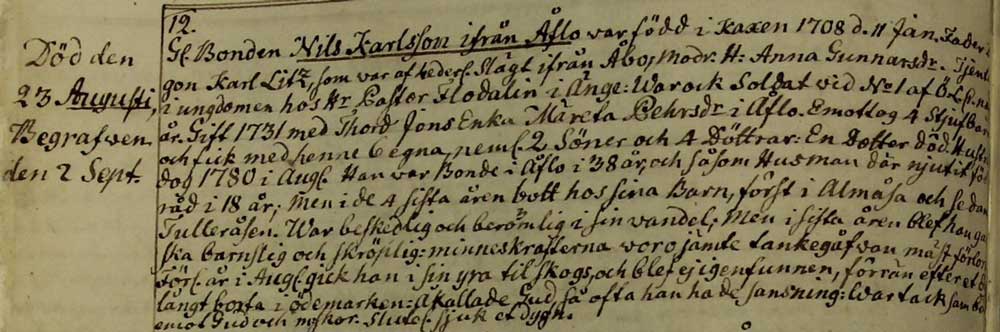 Död den
23 Augusti,
Begrafven
den 2 Sept.
12.
Gl. Bonden Nils Karlsson ifrån Åflo var född i Kaxen 1708 d. 11 Jan. Fader
gon Karl Litz, som var af heders. Slägt ifrån Åbo, Modr. H: Anna Gunnarsdr. Tjent
i ungdomen hos Hr Pastor Flodalin i Ange: War ock Soldat vid No 1 af
år. Gift 1731 med Thord Jons Enka Märeta Pehrsdr i Åflo. Emottog 4 Stjufbarn
och fick med henne 6 egna, neml. 2 Söner och 4 Döttrar: En Dotter död. Hustr
dog 1780 i Aug. Han var Bonde i Åflo i 38 år, och såsom Husman där njutit fö
råd i 18 år; Men i de 4 sista åren bott hos sina Barn, först i Almåsa och sedan
Tulleråsen. War beskedlig och berömlig i sin vandel; Men i sista åren blef han ga
ska barnslig och skröplig: minneskrafterna voro jämte tankegåfvan mäst förlor
Förl. år i Aug. gick han i sin yra til skogs, och blef ej igenfunnen, förrän efter et
långt borta i ödemarken: Åkallade Gud, så ofta han hade sansning: War tacksam
emot Gud och mskor. Slutel. sjuk et dygn.